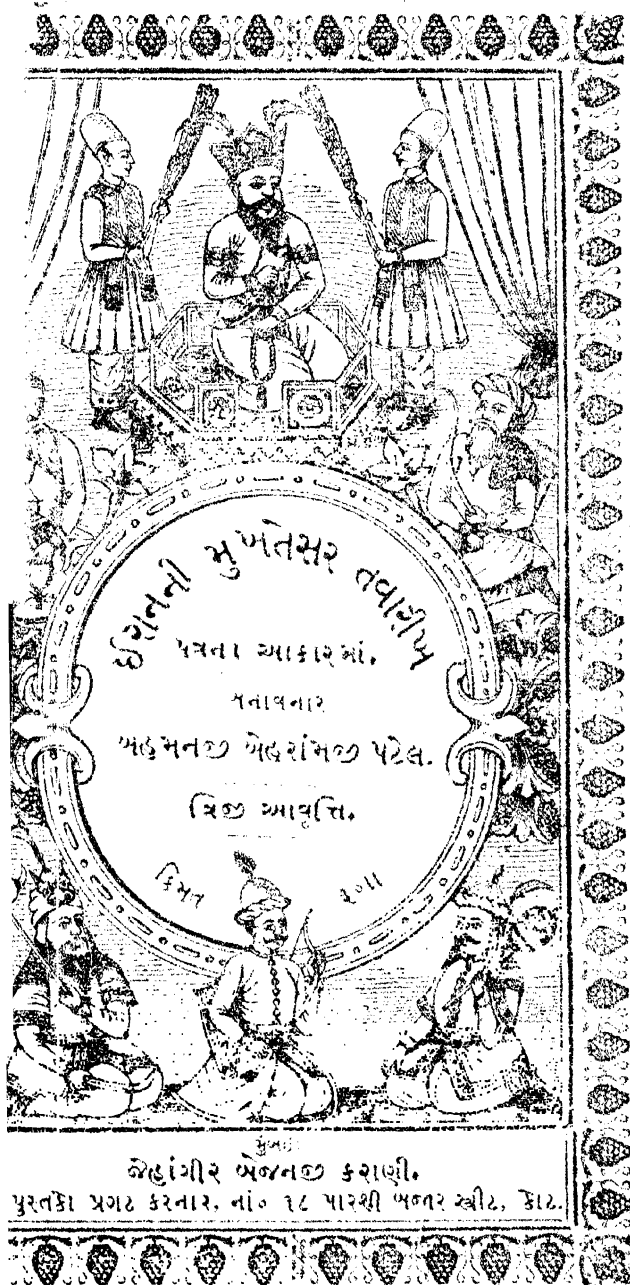 ઈરાનની મુખતેસર તવારીખ
પત્રના આકારમાં.
બનાવનાર
બેહમનજી બેહરાંમજી પટેલ.
ત્રિજી આવૃત્તિ.
કિંમત રૂ૦॥
મુંબઇ:
જેહાંગીર બેજનજી કરાણી.
પુસ્તકો પ્રગટ કરનાર, નાં૦ ૧૮ પારશી બજાર સ્ત્રીટ, કોટ.